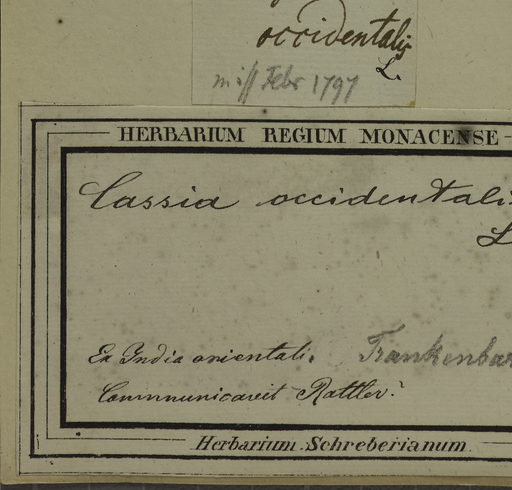 occidentalis
L.
miss Febr 1797
HERBARIUM REGIUM MONACENSE
Cassia occidentalis
L
Ex India orientali.
Trankenbar
Communicavit Rottler.
Herbarium Schreberianum